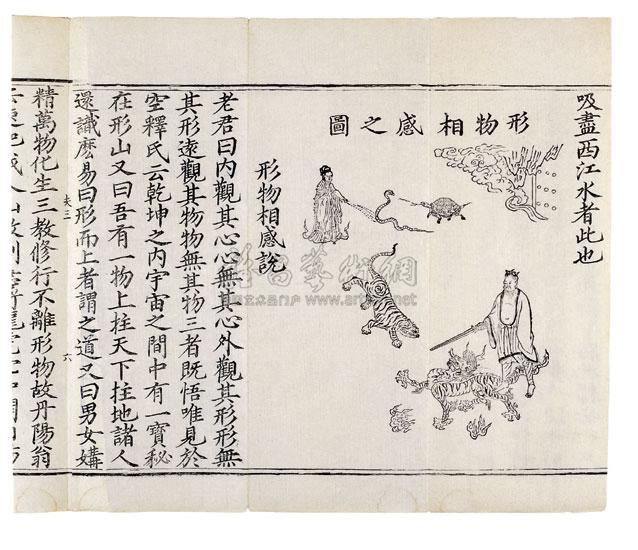 吸盡西江水者此也
形物相感之圖
形物相感說
老君曰內觀其心心無其心外觀其形形無
其形遠觀其物物無其物三者既悟唯見於
空釋氏云乾坤之內宇宙之間中有一寶秘
在形山又曰吾有一物上拄天下拄地諸人
還識麽易曰形而上者謂之道又曰男女媾
夫三
六
精萬物化生三教修行不離形物故丹陽翁